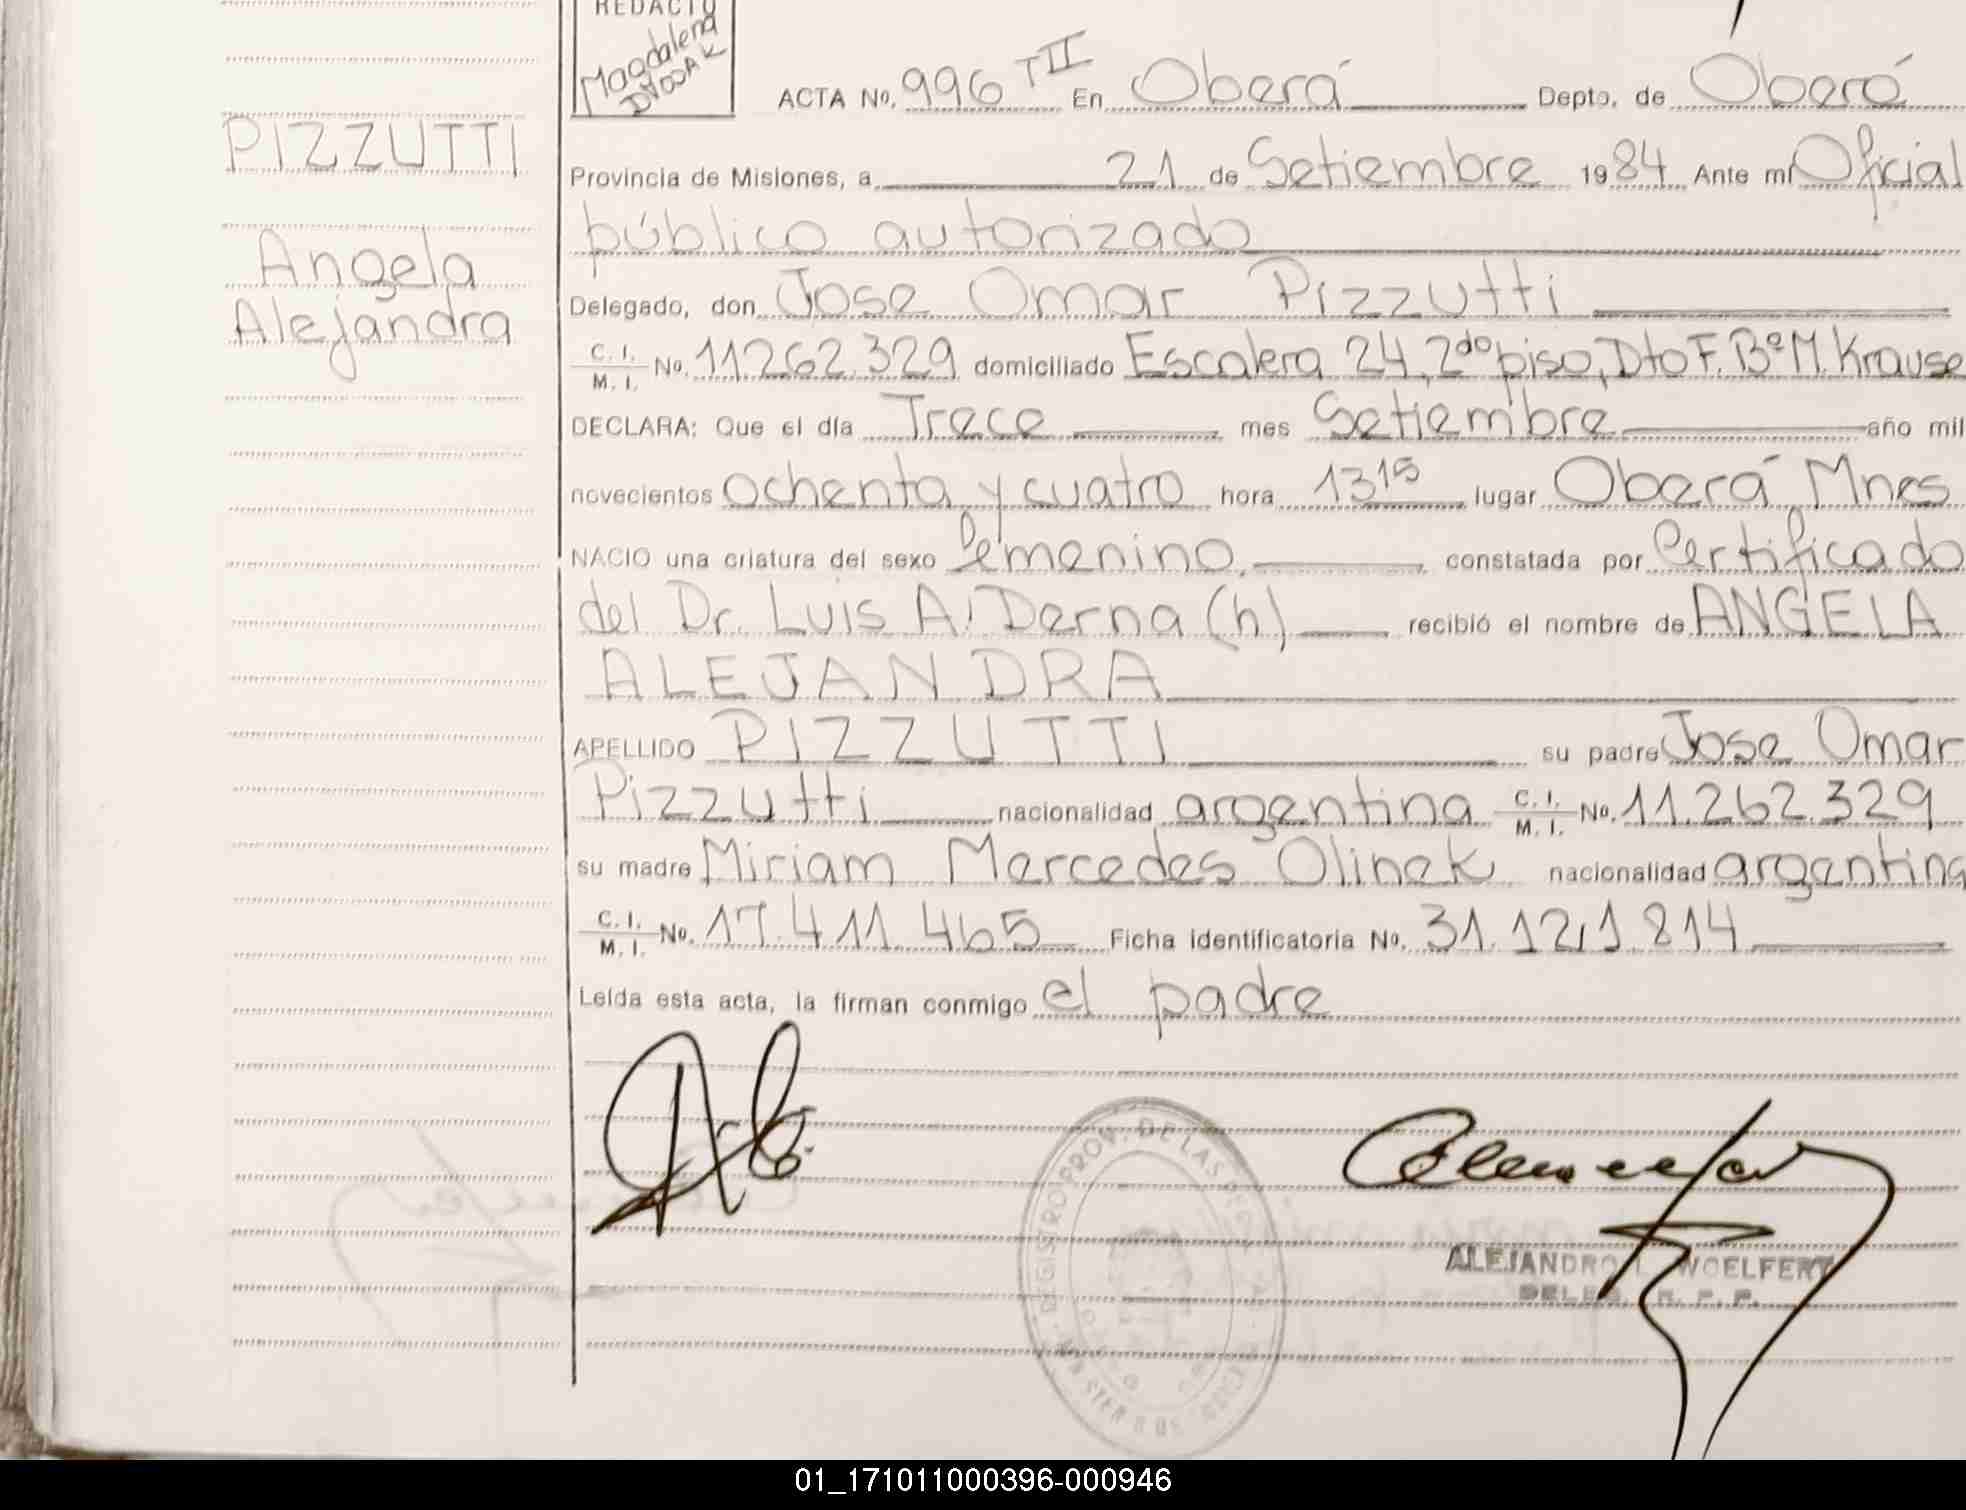 REDACTO
Magdalena
DVODAK
ACTA No. 996 TII En Oberá Depto. de Oberá
PIZZUTTI
Provincia de Misiones, a 21 de Setiembre 1984 Ante mí Oficial
público autorizado
Angela
Alejandra
Delegado, don Jose Omar Pizzutti
C. I. / M. I. No. 11.262.329 domiciliado Escalera 24, 2do piso, Dto F. Bº M. Krause
DECLARA: Que el día Trece mes Setiembre año mil
novecientos ochenta y cuatro hora 13 15 lugar Oberá Mnes
NACIO una criatura del sexo femenino, constatada por Certificado
del Dr. Luis A. Derna (h) recibió el nombre de ANGELA
ALEJANDRA
APELLIDO PIZZUTTI su padre Jose Omar
Pizzutti nacionalidad argentina C. I. / M. I. No. 11.262.329
su madre Miriam Mercedes Olinek nacionalidad argentina
C. I. / M. I. No. 17.411.465 Ficha identificatoria No. 31.121.814
Leída esta acta, la firman conmigo el padre
REGISTRO PROV. DE LAS
ALEJANDRO WOELFERT
01_171011000396-000946